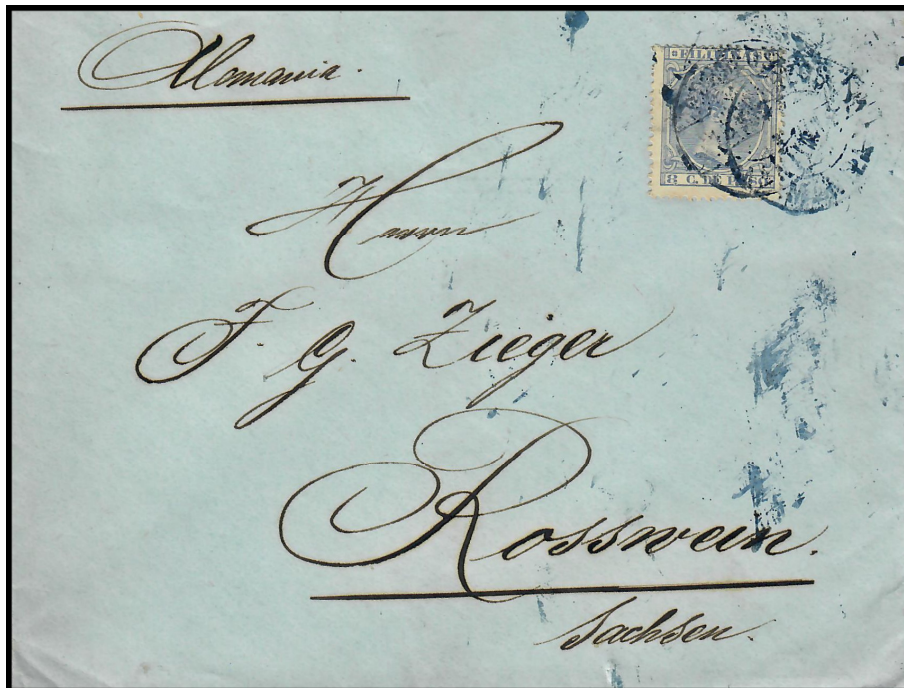 Alemania.
FILIPINAS
8 C. DE PESO
Herrn
F. G. Zieger
Rosswein.
Sachsen.